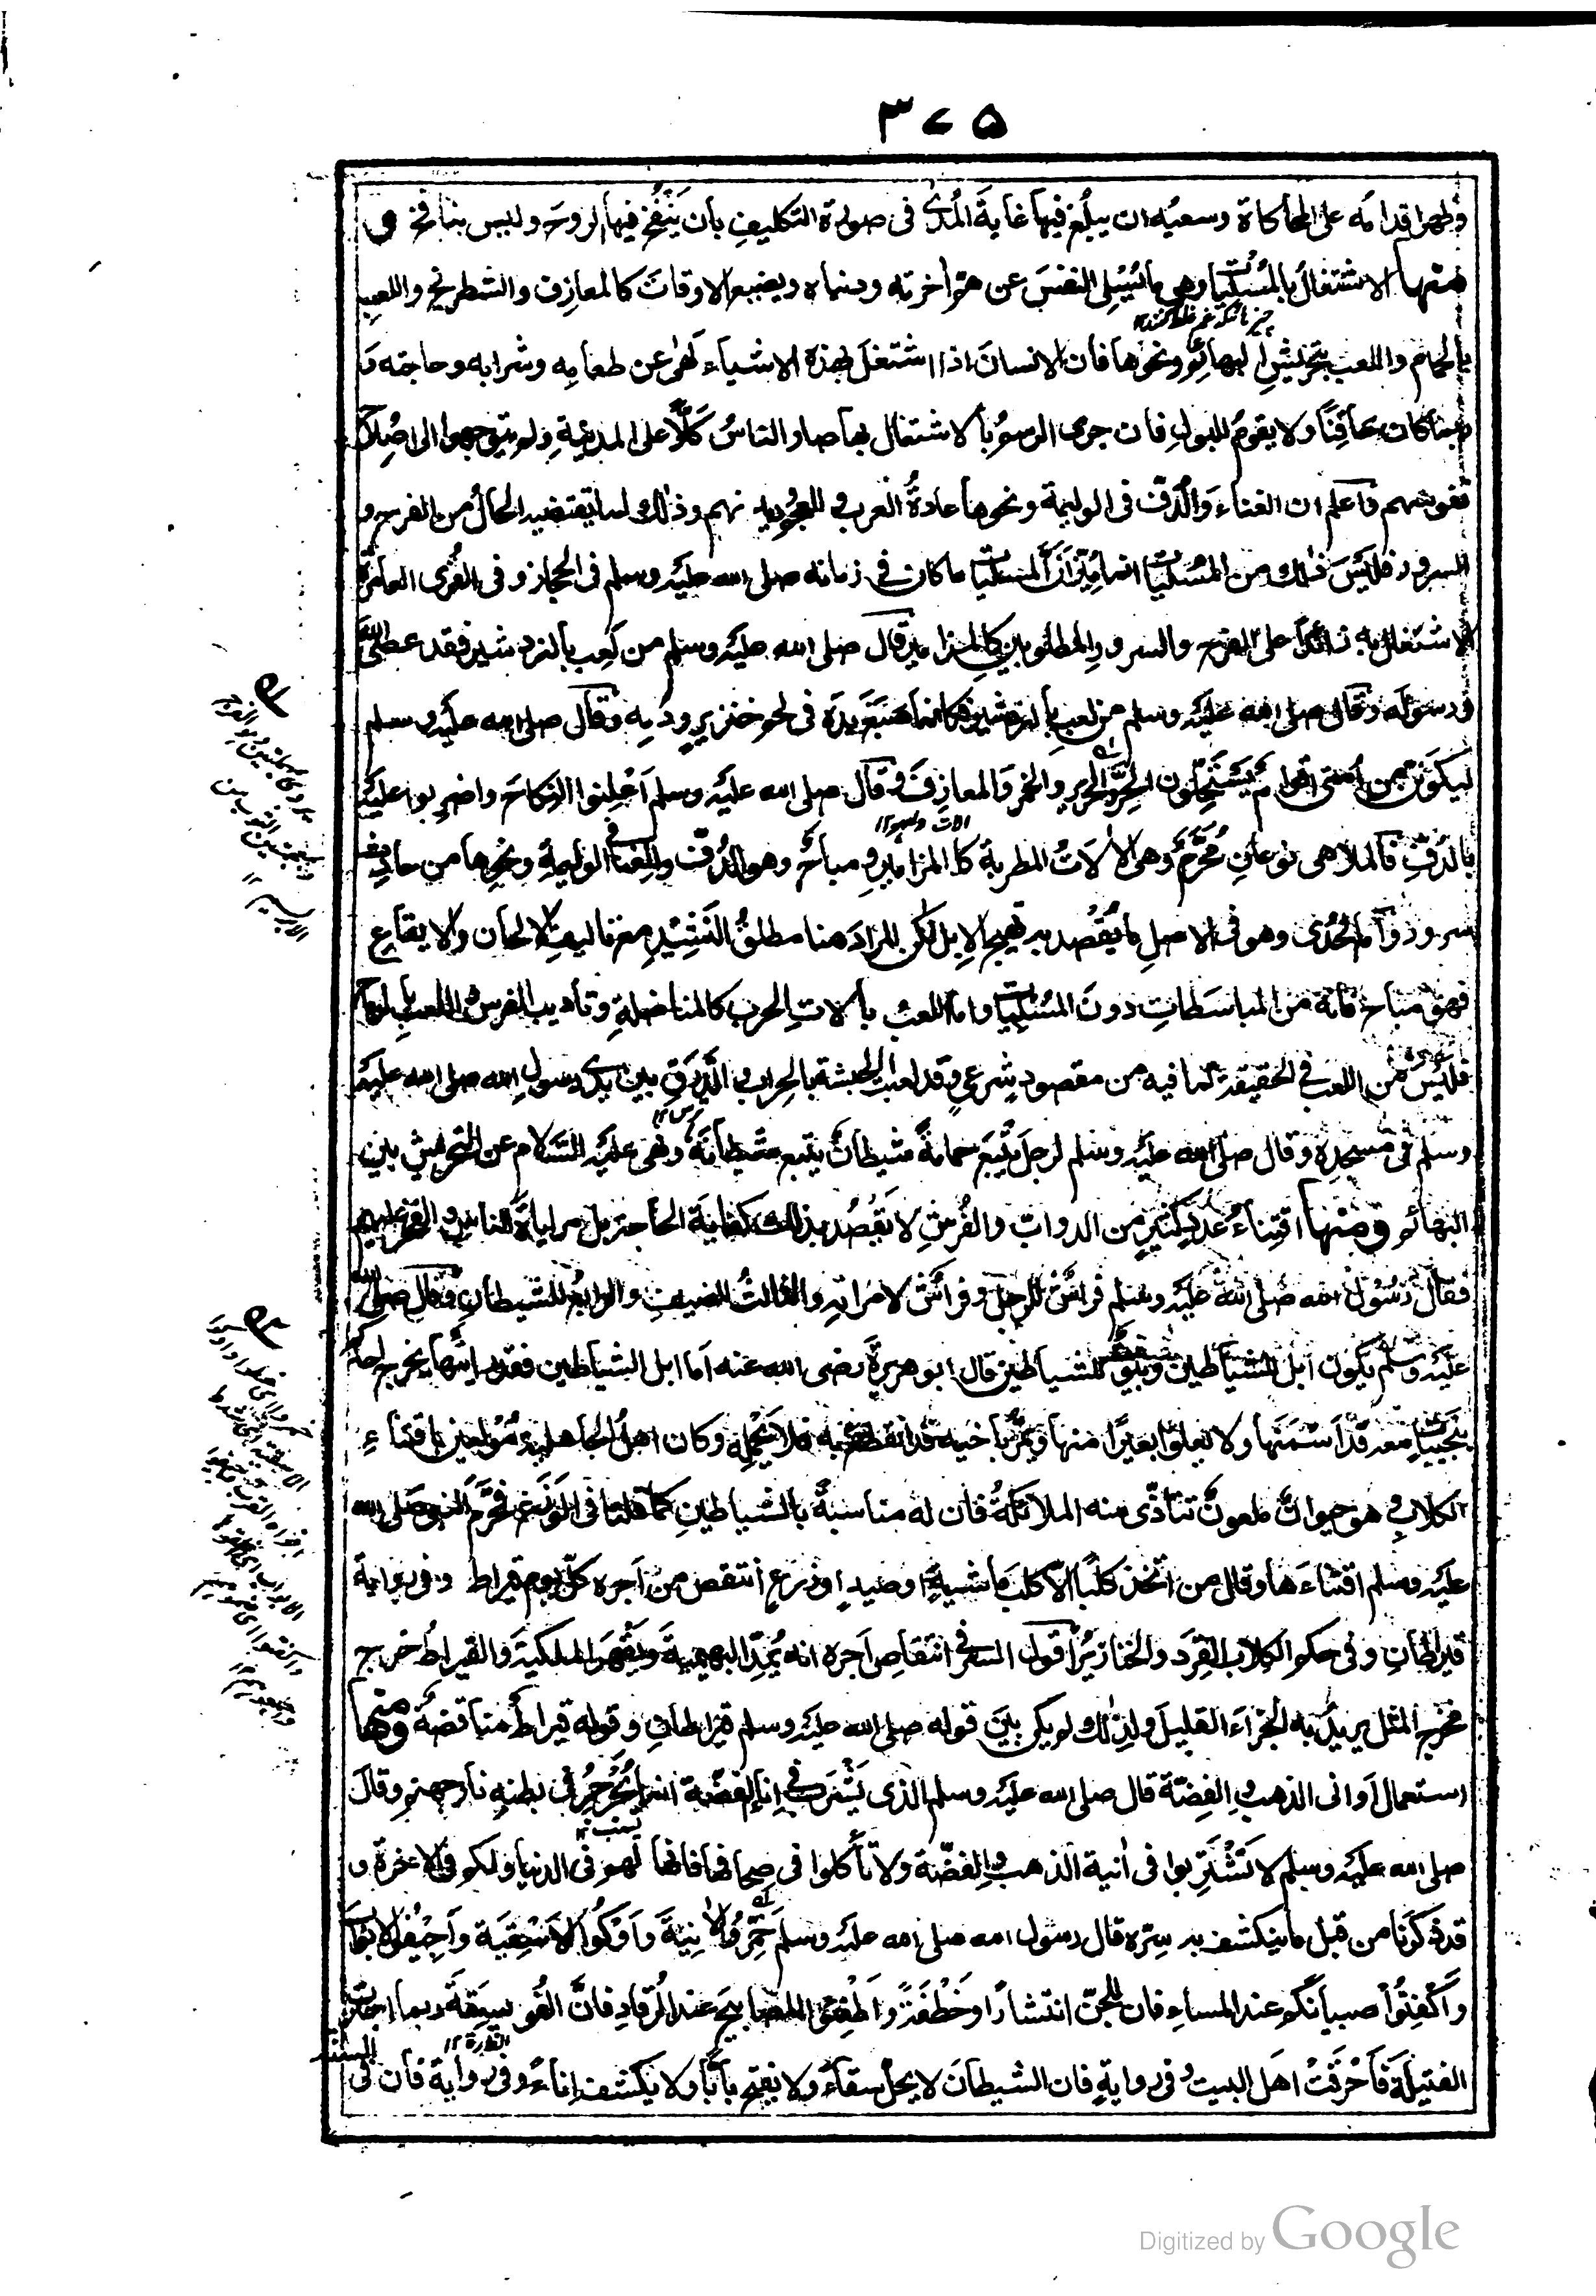 ٣٧٥
وظهر اقدامه على المحاكاة وسعيه ان يبلغ فيها غاية المدى في صورة التكليف بأن ينفخ فيها الروح وليس بنافخ و
منها الاشتغال بالمسليات وهي ما يسلي النفس عن هم أخرته ودنياه ويضيع الاوقات كالمعازف والشطرنج واللعب
بالحمام واللعب بتحريش البهائم ونحوها فان الانسان اذا اشتغل بهذه الاشياء لهى عن طعامه وشرابه وحاجته و
ربما كان حاقنا ولا يقوم للبول فان جرى الرسم بالاشتغال بها صار الناس كلا على المدينة ولم يتوجهوا الى اصلاح
نفوسهم واعلم ان الغناء والدف في الوليمة ونحوها عادة العرب والعجم وديدنهم وذلك لما يقتضيه الحال من الفرح و
السرور فليس ذلك من المسليات انما ميزان المسليات ما كان في زمانه صلى الله عليه وسلم في الحجاز وفي القرى العامرة
الاشتغال به زائدا على الفرح والسرور المطلوبين كالمزامير قال صلى الله عليه وسلم من لعب بالنردشير فقد عصى الله
ورسوله وقال صلى الله عليه وسلم من لعب بالنردشير فكانما صبغ يده في لحم خنزير ودمه وقال صلى الله عليه وسلم
ليكونن من أمتي اقوام يستحلون الحر والحرير والخمر والمعازف وقال صلى الله عليه وسلم أعلنوا النكاح واضربوا عليه
بالدف فالملاهي نوعان محرم وهي الألات المطربة كالمزامير ومباح وهو الدف والغناء في الوليمة ونحوها من حادث
سرور وأما الحدى وهو في الاصل ما يقصد به تهييج الابل لكن المراد هنا مطلق النشيد مع تاليف الالحان والايقاع
فهو مباح فانه من المباسطات دون المسليات واما اللعب بألات الحرب كالمناضلة وتأديب الفرس واللعب بالرماح
فليس من اللعب في الحقيقة لما فيه من مقصود شرعي وقد لعب الحبشة بالحراب والدرق بين يدي رسول الله صلى الله عليه
وسلم في مسجده وقال صلى الله عليه وسلم لرجل يتبع حمامة شيطان يتبع شيطانة ونهى عليه السلام عن التحريش بين
البهائم ومنها اقتناء عدد كثير من الدواب والفرش لا يقصد بذلك كفاية الحاجة بل مراياة الناس والفخر عليهم
فقال رسول الله صلى الله عليه وسلم فراش للرجل وفراش لامراته والثالث للضيف والرابع للشيطان وقال صلى الله
عليه وسلم يكون ابل للشياطين وبيوت للشياطين قال ابو هريرة رضى الله عنه اما ابل الشياطين فقد رايتها يخرج احدكم
بنجيبات معه قد اسمنها ولا يعلو بعيرا منها ويمر بأخيه قد انقطع به فلا يحمله وكان اهل الجاهلية مولعين باقتناء
الكلاب وهو حيوان ملعون تتأذى منه الملائكة فان له مناسبة بالشياطين كما قلنا في الوزغ فحرم النبي صلى الله
عليه وسلم اقتناءها وقال من اتخذ كلبا الا كلب ماشية او صيد او زرع انتقص من أجره كل يوم قيراط وفي رواية
قيراطان وفي حكم الكلاب القرد والخنازير أقول السر في انتقاص اجره انه يمد البهيمية ويقهر الملكية والقيراط خرج
مخرج المثل يريد به الجزاء القليل ولذلك لم يكن بين قوله صلى الله عليه وسلم قيراطان وقوله قيراط مناقضة ومنها
استعمال أواني الذهب والفضة قال صلى الله عليه وسلم الذي يشرب في إناء الفضة انما يجرجر في بطنه نار جهنم وقال
صلى الله عليه وسلم لا تشربوا في أنية الذهب والفضة ولا تأكلوا في صحافها فانها لهم في الدنيا ولكم في الاخرة و
قد ذكرنا من قبل ما ينكشف به سره قال رسول الله صلى الله عليه وسلم خمروا الأنية وأوكوا الاسقية وأجيفوا الابواب
واكفتوا صبيانكم عند المساء فان للجن انتشارا وخطفة واطفئوا المصابيح عند الرقاد فان الفويسقة ربما اجترت
الفتيلة فأحرقت اهل البيت وفي رواية فان الشيطان لا يحل سقاء ولا يفتح بابا ولا يكشف اناء وفي رواية فان في
السنة
Digitized by Google